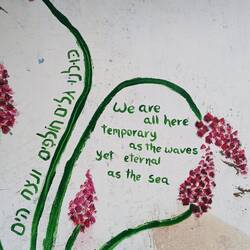 חולפים ונצח הים
We are
all here
temporary
as the waves
yet eternal
as the sea